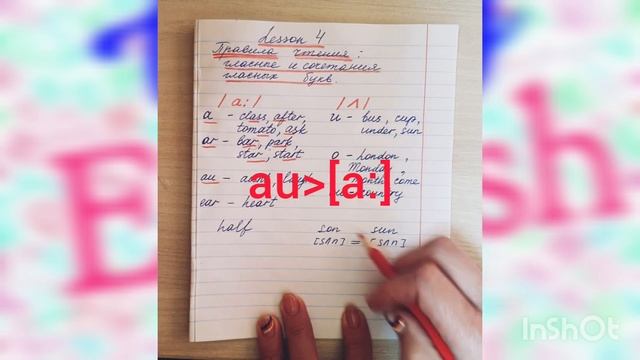 Lesson 4
Правила чтения:
гласные и сочетания
гласных букв.
/a:/ /ʌ/
a - class, after, u - bus, cup,
tomato, ask under, sun
ar - bar, park,
star, start o - London,
Monday,
au - month, come
country
au>[a:]
ear - heart
half son sun
[sʌn] = [sʌn]
InShOt